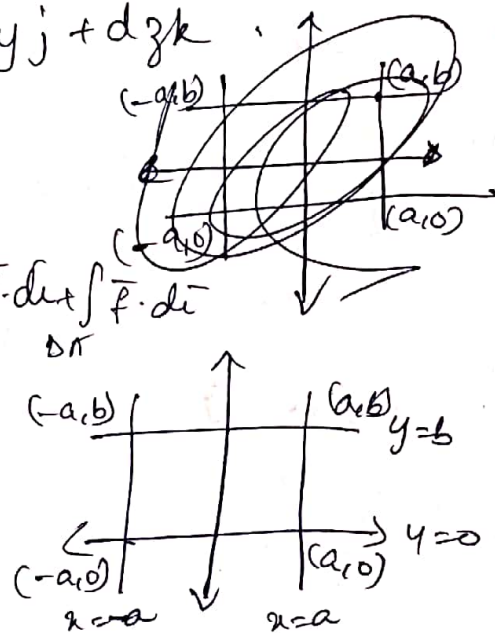 yj + dzk .
(-a,b) (a,b)
(-a,0) (a,0)
. dr + ∫ f̄ · dr̄
DA
(-a,b) (a,b) y=b
y=0
(-a,0) (a,0)
x=-a x=a